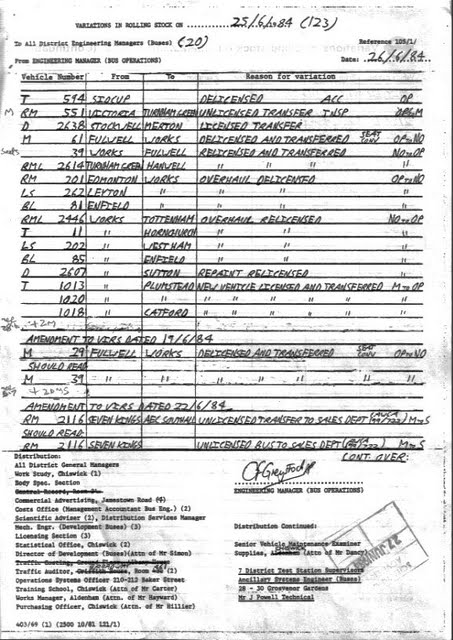 VARIATIONS IN ROLLING STOCK ON 25/6/1984 (123)
To All District Engineering Managers (Buses) (20) Reference 105/1/
From ENGINEERING MANAGER (BUS OPERATIONS) Date: 26/6/84
Vehicle Number From To Reason for variation
T 594 SIDCUP DELICENSED ACC OP
M RM 551 VICTORIA TURNHAM GREEN UNLICENSED TRANSFER INSP
D 2638 STOCKWELL MERTON LICENSED TRANSFER
M 61 FULWELL WORKS DELICENSED AND TRANSFERRED SEAT CONV OP TO NO
39 WORKS FULWELL RELICENSED AND TRANSFERRED NO TO OP
RML 2614 TURNHAM GREEN HANWELL " " "
RM 201 EDMONTON WORKS OVERHAUL DELICENSED OP TO NO
LS 262 LEYTON " " " "
BL 81 ENFIELD " " " "
RML 2446 WORKS TOTTENHAM OVERHAUL RELICENSED NO TO OP
T 11 " HORNCHURCH " " "
LS 202 " WEST HAM " " "
BL 85 " ENFIELD " " "
D 2607 " SUTTON REPAINT RELICENSED "
T 1013 PLUMSTEAD NEW VEHICLE LICENSED AND TRANSFERRED M TO OP
1020 " " " " " "
1018 CATFORD " " " " "
+2M
AMENDMENT TO VIRS DATED 19/6/84
M 29 FULWELL WORKS DELICENSED AND TRANSFERRED SEAT CONV OP TO NO
SHOULD READ
M 39 " " " " " "
AMENDMENT TO VIRS DATED 22/6/84
RM 2116 SEVEN KINGS AEC SOUTHALL UNLICENSED TRANSFER TO SALES DEPT M TO S
SHOULD READ:
RM 2116 SEVEN KINGS UNLICENSED BUS TO SALES DEPT M TO S
CONT. OVER:
Distribution:
All District General Managers
Work Study, Chiswick (1)
Body Spec. Section
Commercial Advertising, Jamestown Road (4)
Costs Office (Management Accountant Bus Eng.) (2)
Scientific Adviser (2), Distribution Services Manager
Mech. Engr. (Development Buses) (3)
Licensing Section (3)
Statistical Office, Chiswick (2)
Director of Development (Buses)(Attn of Mr Simon)
Operations Systems Officer 210-212 Baker Street
Training School, Chiswick (Attn of Mr Carter)
Works Manager, Aldenham (Attn. of Mr Hayward)
Purchasing Officer, Chiswick (Attn of Mr Hillier)
403/69 (1) (2500 10/81 121/1)
ENGINEERING MANAGER (BUS OPERATIONS)
Distribution Continued:
Senior Vehicle Maintenance Examiner
Supplies, Aldenham (Attn of Mr Dancy)
7 District Test Station Supervisors
Ancillary Systems Engineer (Buses)
28 - 30 Grosvenor Gardens
Mr J Powell Technical